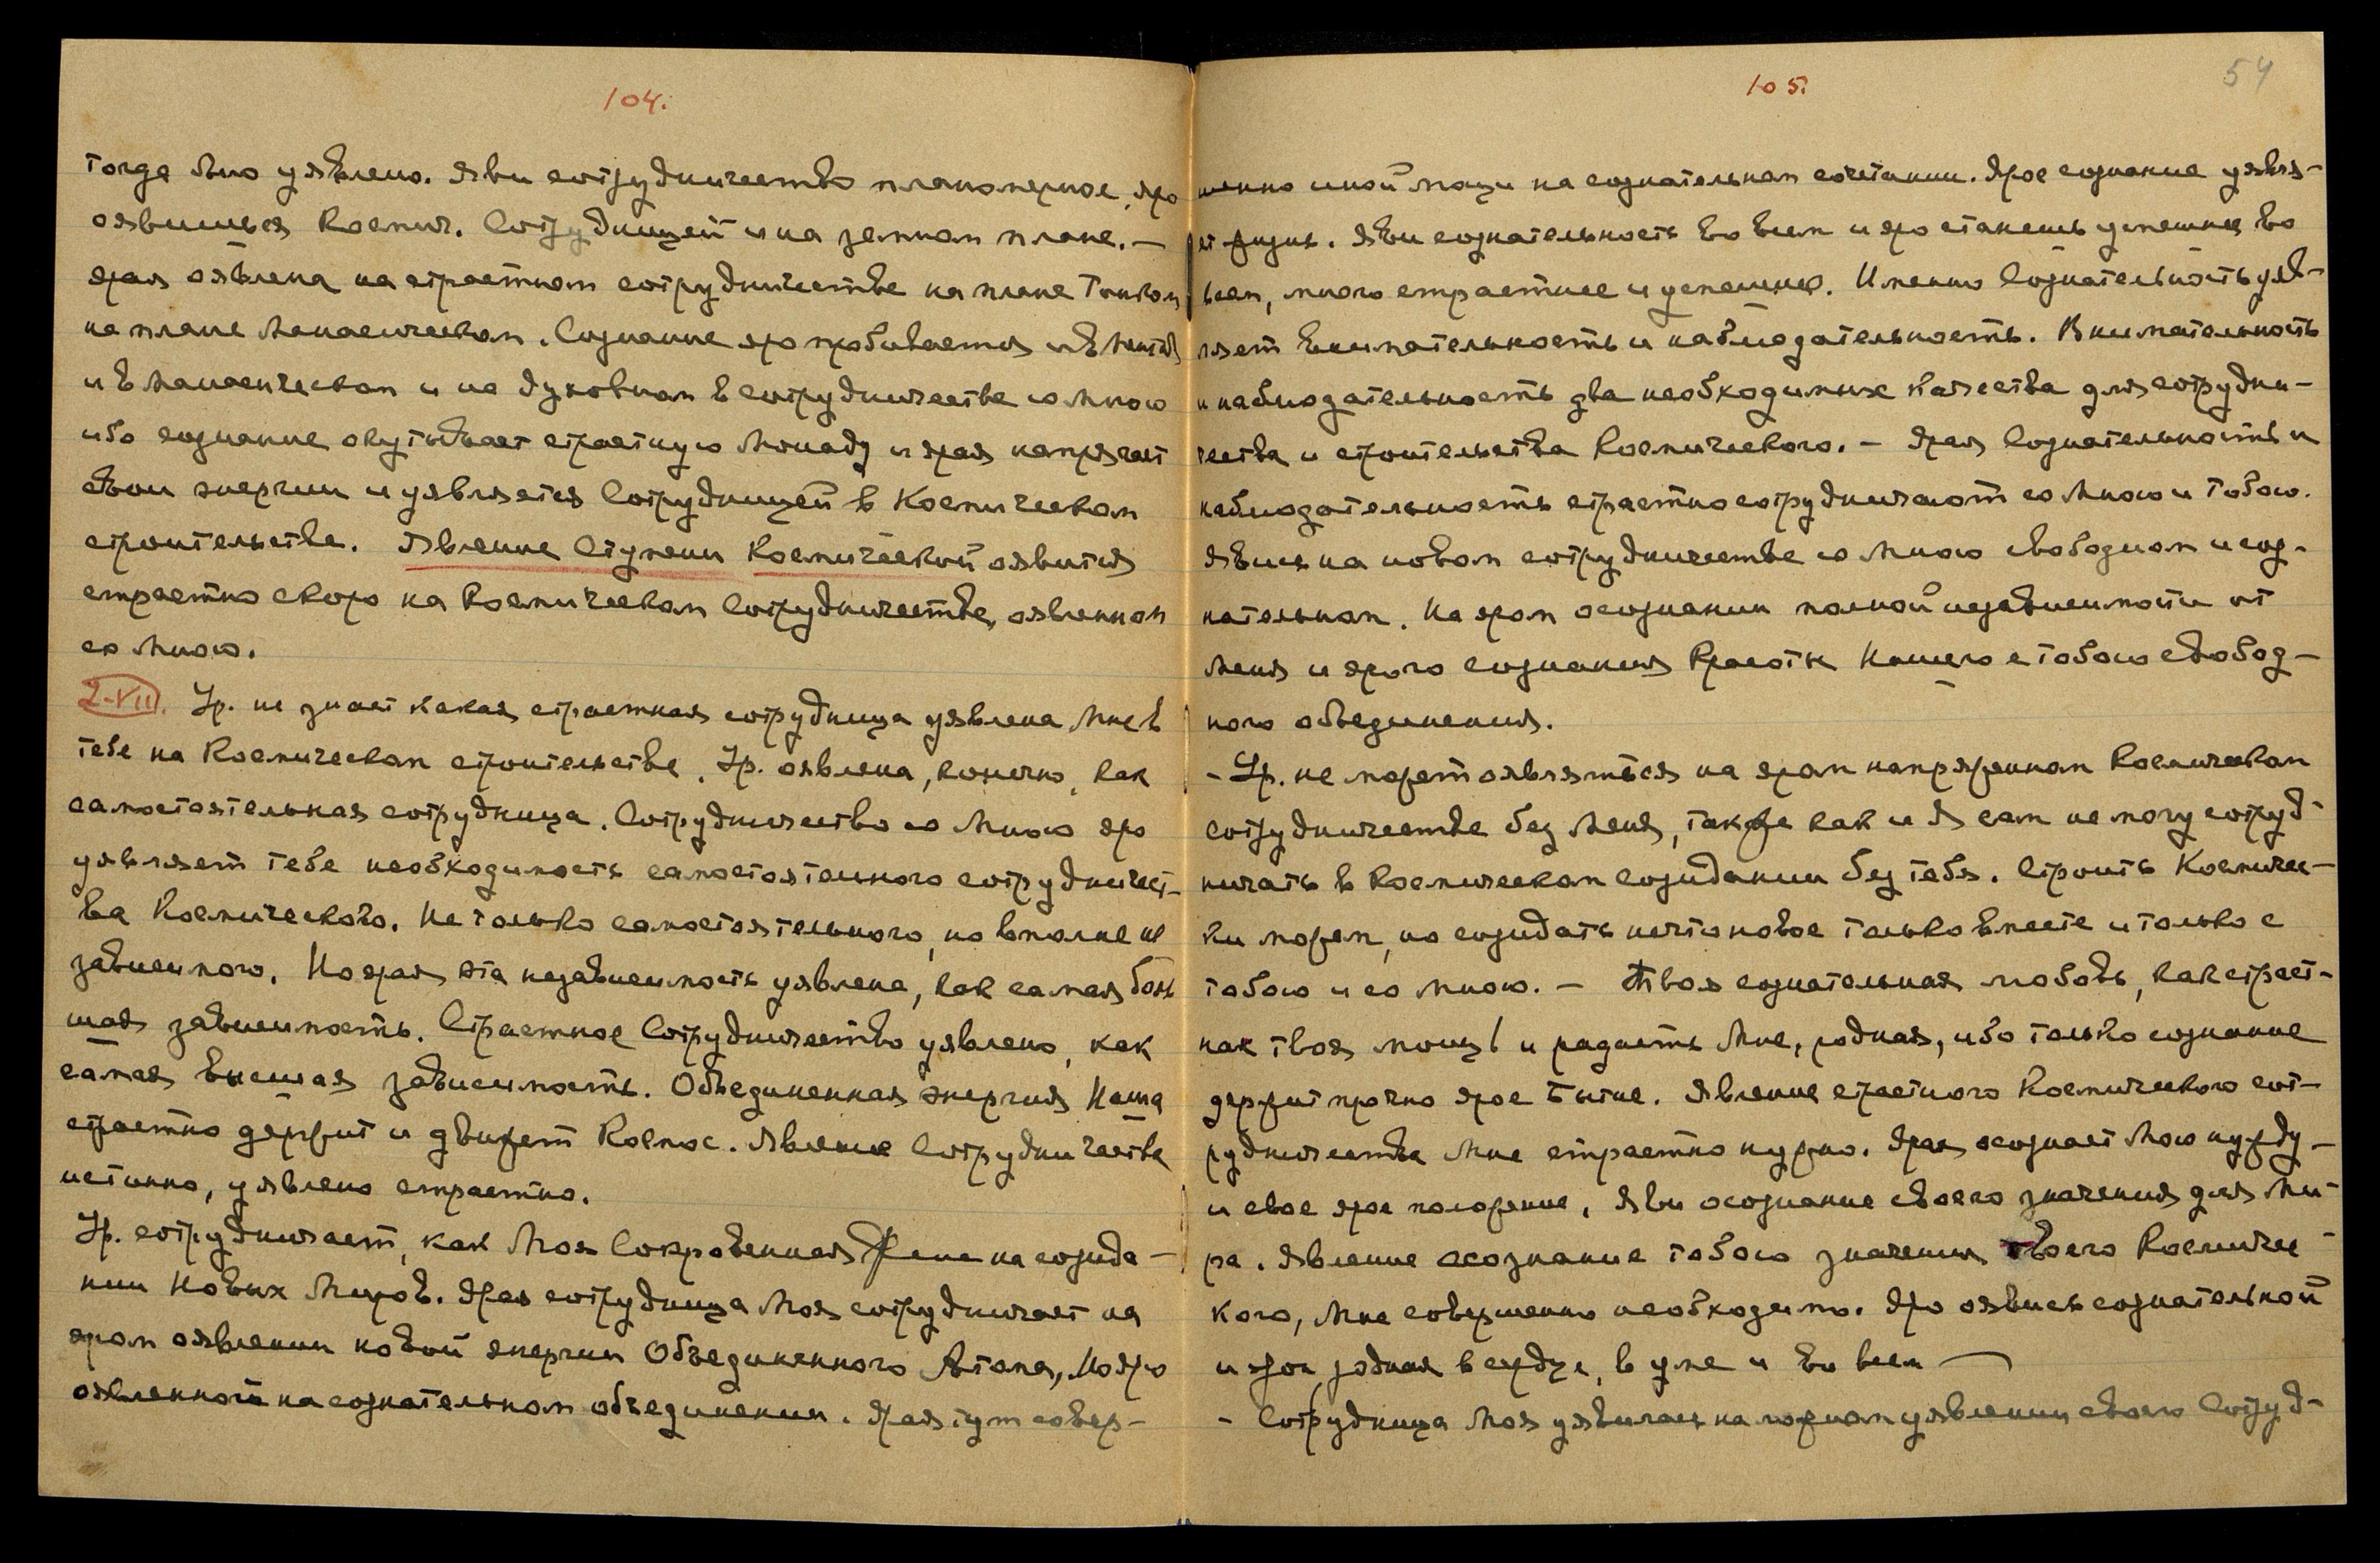 104.
тогда Мною уявлено. Яви сотрудничество планомерное, яро
оявишься Космич. Сотрудницей и на земном плане. —
ярая оявлена на страстном сотрудничестве на плане Тонком
на плане Манасическом. Сознание яро пробивается и в
и в Манасическом и на духовном в сотрудничестве со Мною
ибо сознание окутывает страстную Монаду и ярая напрягает
свои энергии и уявляется Сотрудницей в Космическом
строительстве. Явление Ступени Космической оявится
страстно скоро на Космическом Сотрудничестве, оявленном
со Мною.
2-VII. Ур. не знает какая страстная сотрудница уявлена Мне в
тебе на Космическом строительстве. Ур. оявлена, конечно, как
самостоятельная сотрудница. Сотрудничество со Мною яро
уявляет тебе необходимость самостоятельного сотрудничест-
ва Космического. Не только самостоятельного, но вполне не
зависимого. Но ярая эта независимость уявлена, как самая боль
шая зависимость. Страстное Сотрудничество уявлено, как
самая высшая зависимость. Объединенная энергия Наша
страстно держит и движет Космос. Явление Сотрудничества
истинно, уявлено страстно.
Ур. сотрудничает, как Моя Сокровенная Жена на созида-
нии Новых Миров. Ярая сотрудница Моя сотрудничает на
яром оявлении новой энергии Объединенного Атома, но яро
оявленной на сознательном объединении. Ярая тут совер-
105.
54
шенно иной мощи на сознательном сочетании. Ярое сознание уявля-
ет жизнь. Яви сознательность во всем и яро станешь успешнее во
всем, много страстнее и успешнее. Именно Сознательность уяв-
ляет внимательность и наблюдательность. Внимательность
и наблюдательность два необходимых качества для сотрудни-
чества и строительства Космического. — Ярая Сознательность и
наблюдательность страстно сотрудничают со Мною и Тобою.
Явись на новом сотрудничестве со Мною свободном и соз-
нательном. На яром осознании полной независимости от
Меня и ярого сознания Красоты Нашего с тобою свобод-
ного объединения.
- Ур. не может оявляться на яром напряженном Космическом
сотрудничестве без Меня, также как и Я сам не могу сотруд-
ничать в Космическом созидании без тебя. Строить Космичес-
ки можем, но созидать нечто новое только вместе и только с
тобою и со Мною. — Твоя сознательная любовь, как страст-
ная твоя мощь и радость Мне, родная, ибо только сознание
держит прочно ярое Бытие. Явление страстного Космического сот-
рудничества Мне страстно нужно. Ярая осознает Мою нужду —
и свое ярое положение. Яви осознание своего значения для Ми-
ра. Явление осознание тобою значения твоего Космичес-
кого, Мне совершенно необходимо. Яро оявись сознательной
и родная в сердце, в уме и во всем —
- Сотрудница Моя уявилась на уявлении своего Сотруд-